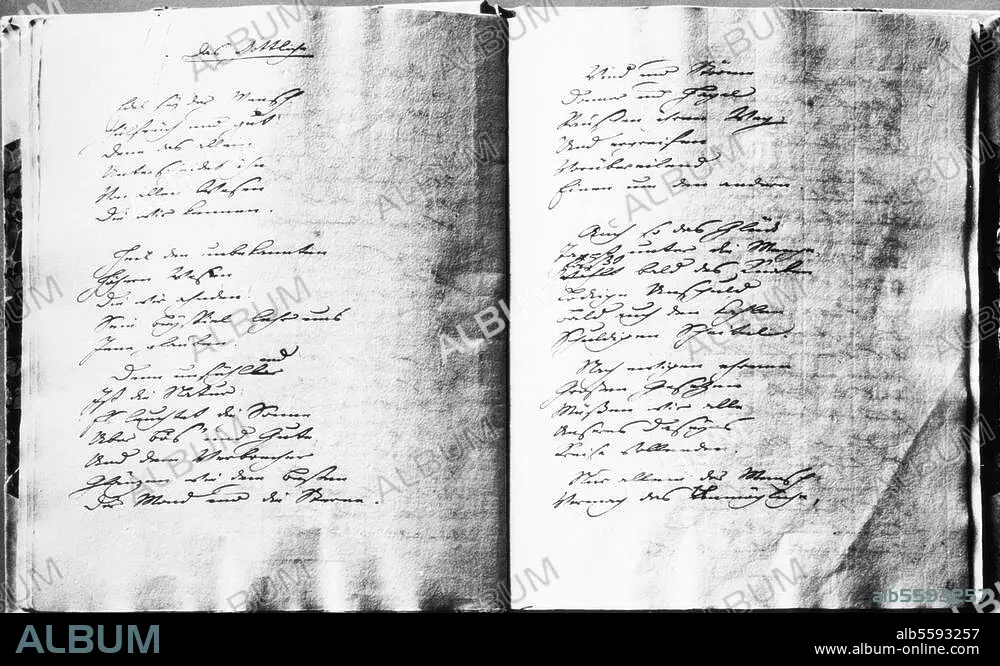 Das Göttliche
Edel sey der Mensch
Hülfreich und gut
Denn das allein
Unterscheidet ihn
Von allen Wesen
Die wir kennen.
Heil den unbekannten
Höhern Wesen
Die wir ahnden.
Sein Beyspiel lehr uns
Jene glauben.
Denn unfühlend
Ist die Natur
Es leuchtet die Sonne
Über Bös' und Gute
Und dem Verbrecher
Glänzen wie dem Besten
Der Mond und die Sterne.
Wind und Ströme
Donner und Hagel
Rauschen ihren Weg
Und ergreifen
Vorübereilend
Einen um den andern.
Auch so das Glück
Tappt unter die Menge
bald des Knaben
Lockige Unschuld
Bald auch den kahlen
Schuldigen Scheitel.
Nach ewigen ehrnen
Großen Gesetzen
Müßen wir alle
Unseres Daseyns
Kreise vollenden.
Nur allein der Mensch
Vermag das Unmögliche,
ALBUM
alb5593257
www.album-online.com